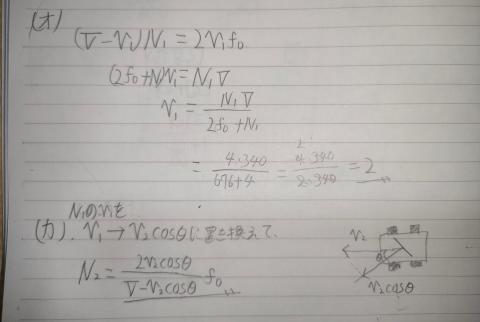 (オ)
(V-v₁)N₁=2v₁f₀
(2f₀+N₁)v₁=N₁V
v₁=N₁V/(2f₀+N₁)
=4·340/(676+4)=4·340/(2·340)=2
N₁のv₁を
(カ). v₁→v₂cosθに置き換えて、
N₂=2v₂cosθ/(V-v₂cosθ) f₀
v₂
θ
v₂cosθ